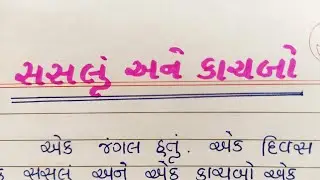 સસલું અને કાચબો
એક જંગલ હતું. એક દિવસ
સસલું અને એક કાચબો એક